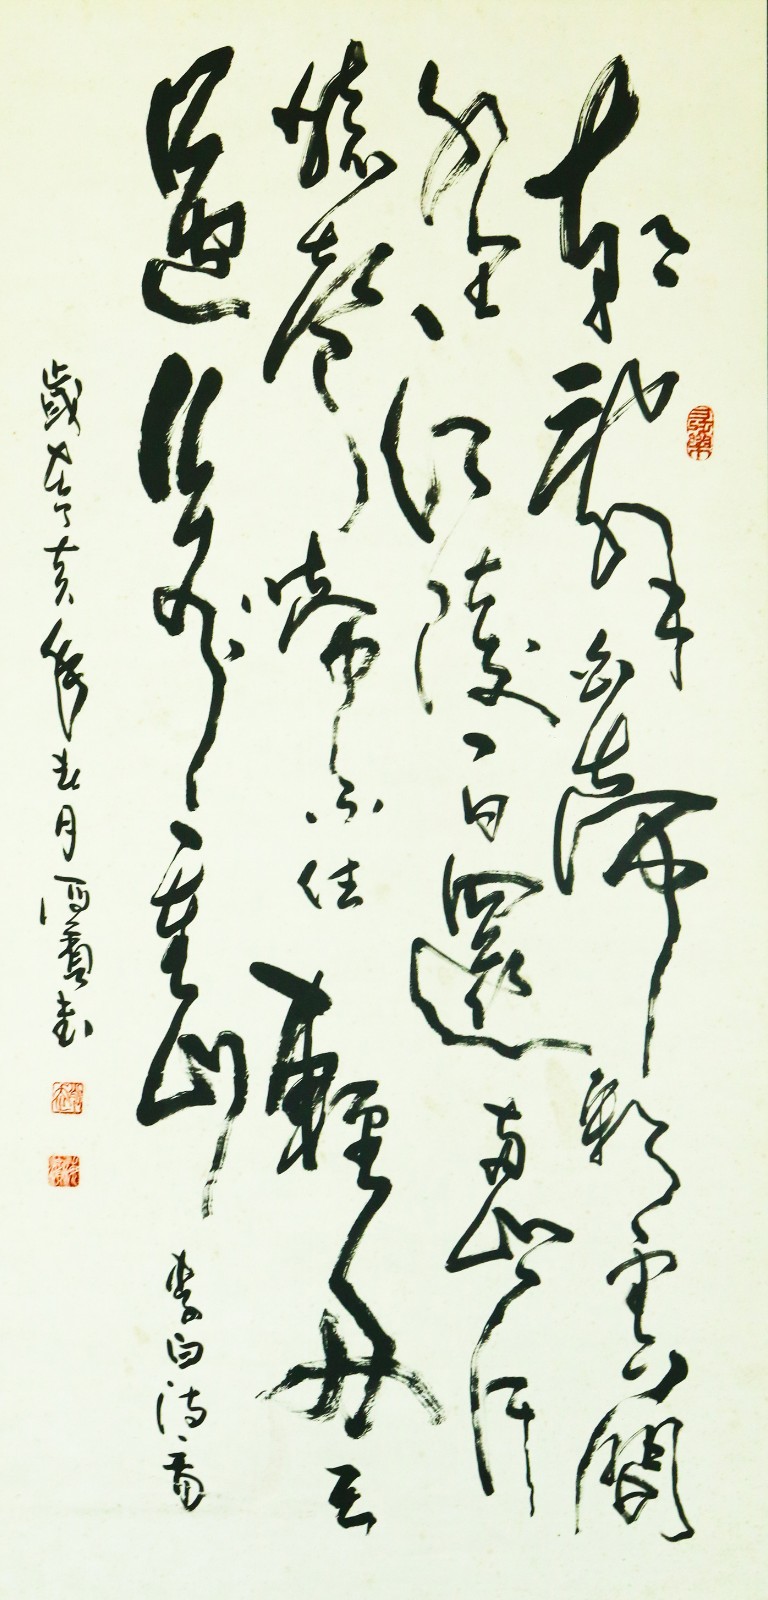 朝辭白帝彩雲間
千里江陵一日還兩岸
猿聲啼不住輕舟已
過萬重山 李白詩一首
歲 亥年春月 書